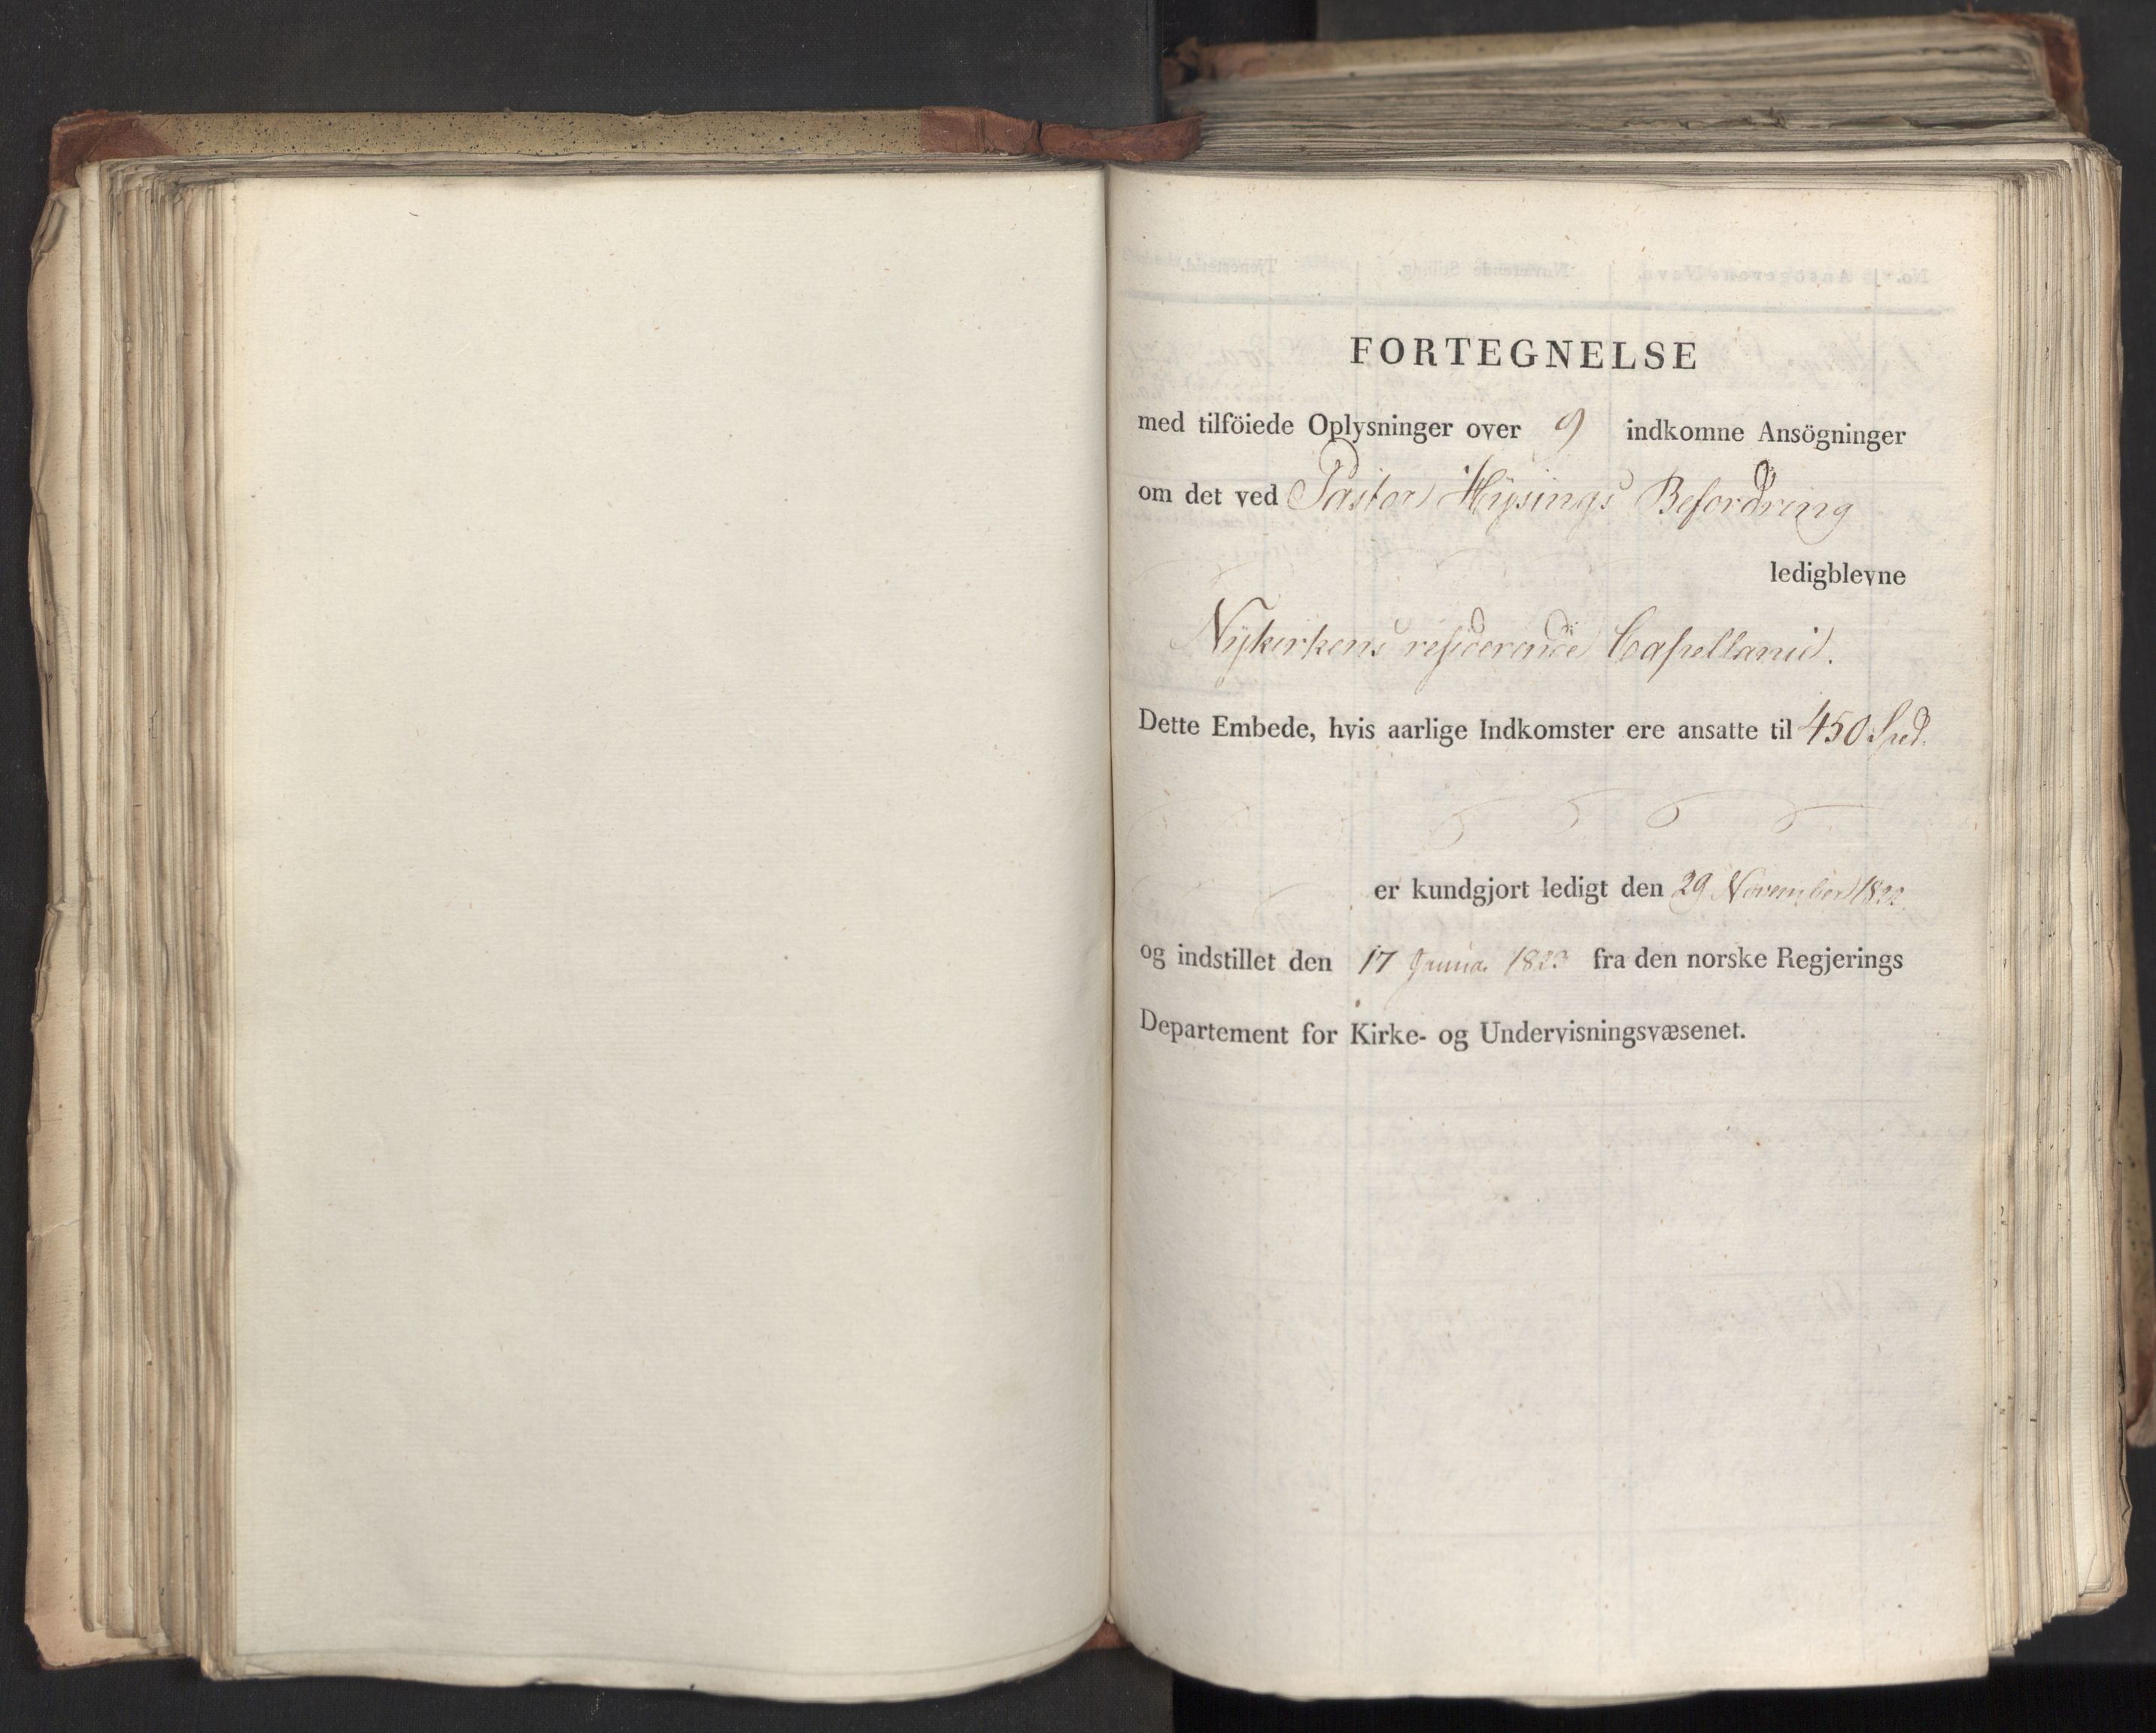 FORTEGNELSE
med tilföiede Oplysninger over 9 indkomne Ansögninger
om det ved Pastor Hysings Befordring
ledigblevne
Nykirkens residerende Capellanie.
Dette Embede, hvis aarlige Indkomster ere ansatte til 450 Spd.
er kundgjort ledigt den 29 November 1822
og indstillet den 17 Januar 1823 fra den norske Regjerings
Departement for Kirke- og Undervisningsvæsenet.